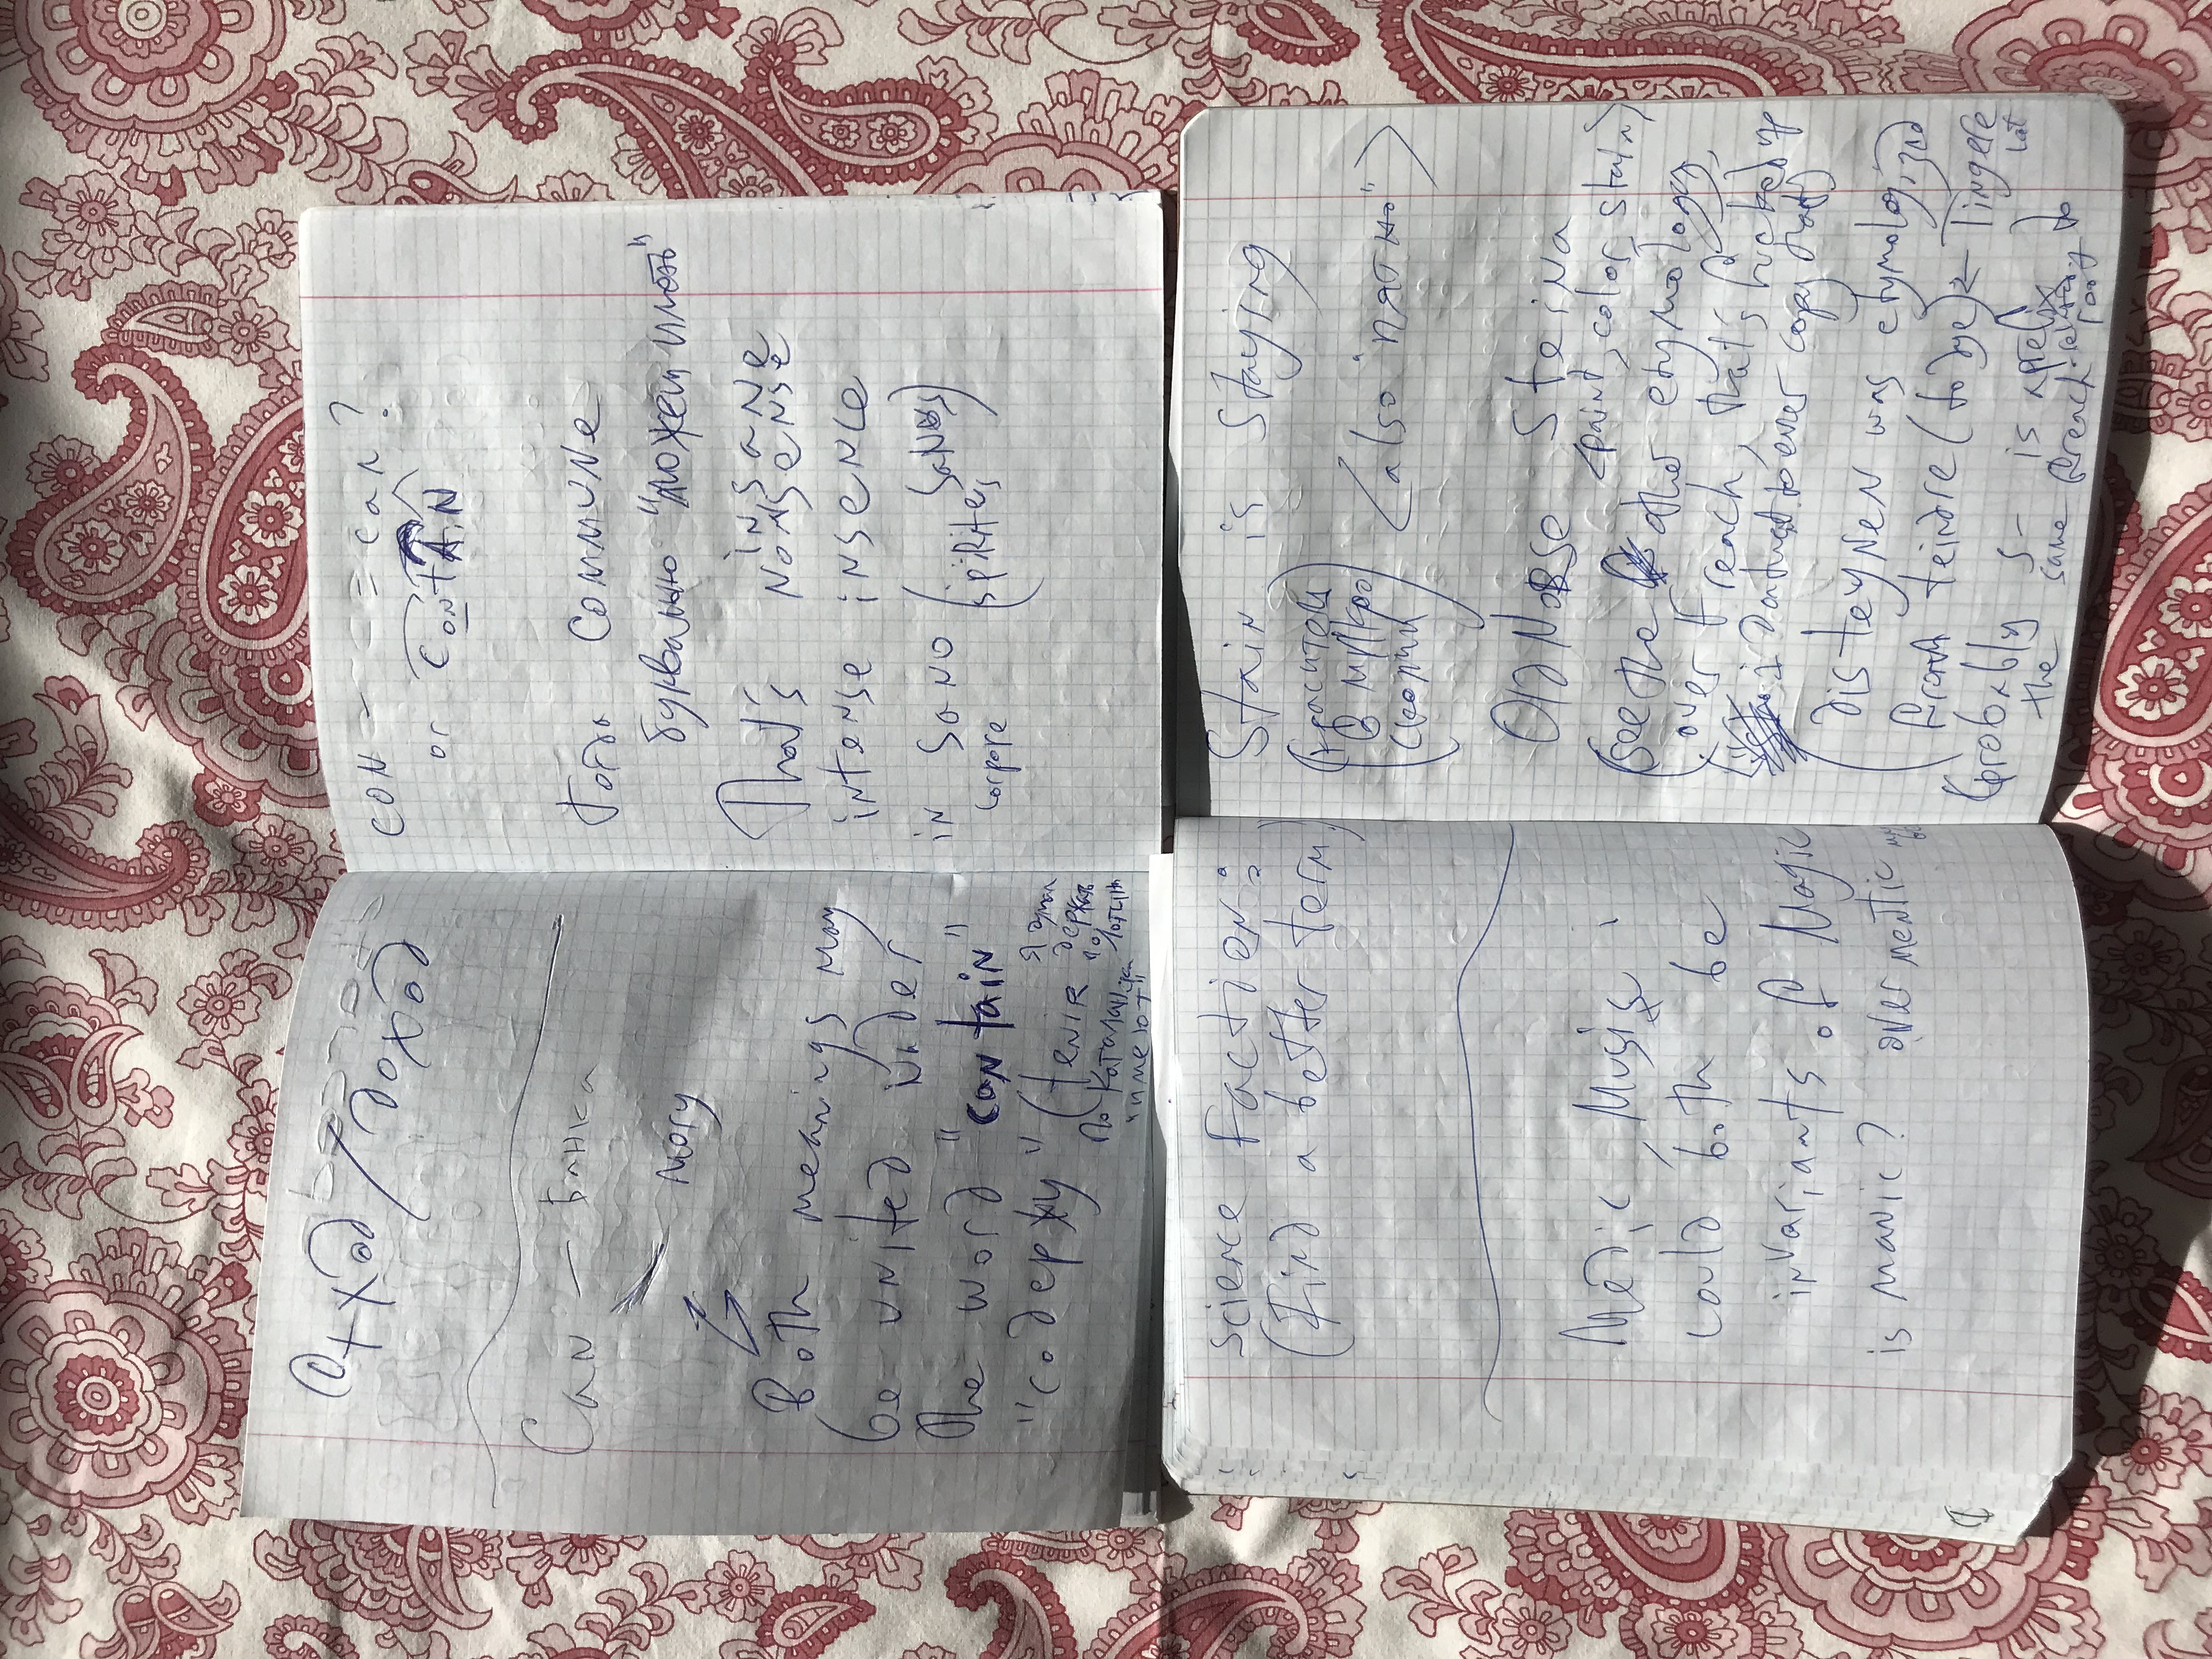 Отход / Доход
Can — Банка
могу
Both meanings may
be united under
the word "contain"
"содержу" (tenir
я думал
держать
по
Латыни
По Каталански
"имеют"
con — = can?
or contAiN
Тогда commune
буквально "может иметь"
That's insane
nonsense
intense insence
in sano (spirites sanos)
corpore
Science Faction:
(Find a better term)
Medic, Music
could both be
invariants of Magic
is manic? over mentic
Stain is staying
(краситель
в микро
скопии)
<also "пятно">
Old Norse steina
<paint, color, stain>
(see the other etymology,
over Freach, that's fucked up
to ever copy that)
disteynen was etymologized
from teindre (to dye) ← Tingere
Lat
(probably s- is a prefix to
the same freach-related root